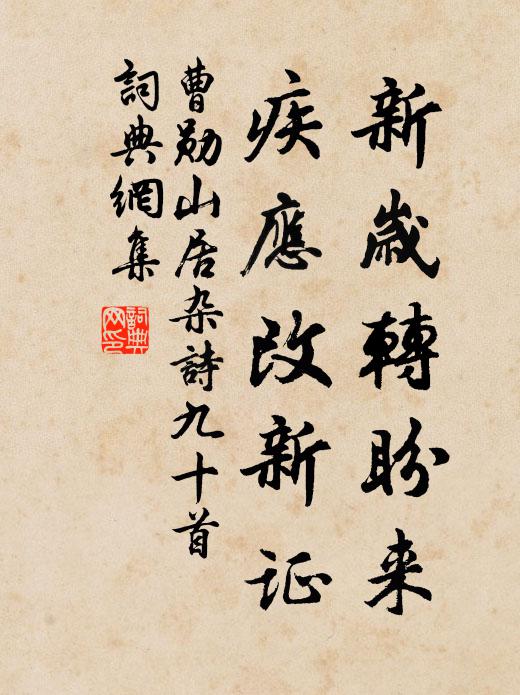 新歲轉盼来
疾應改新证
曹勛山居杂詩九十首
詞典網集
詞典網印